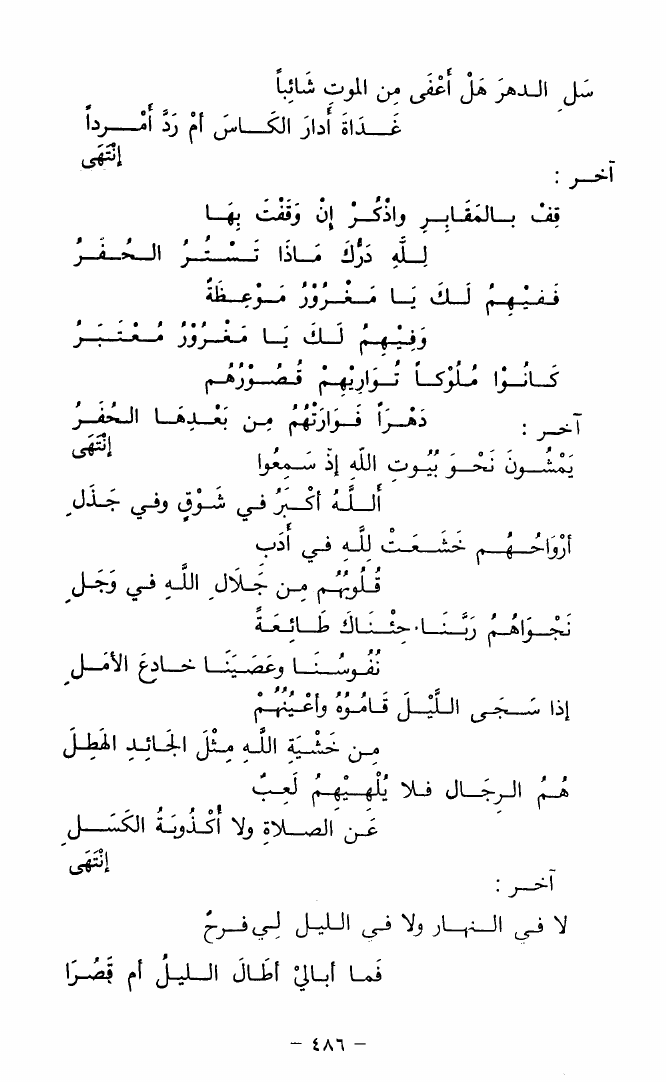 سَلِ الدهرَ هَلْ أَعْفَى مِن الموتِ شَائِباً
غَدَاةَ أَدارَ الكَاسَ أَمْ رَدَّ أَمْرداً
إنْتَهَى
آخر :
قِفْ بالمَقَابِرِ واذْكُرْ إِنْ وَقَفْتَ بِهَا
لِلَّهِ دَرُّكَ مَاذَا تَسْتُرُ الحُفَرُ
فَفِيْهِمُ لَكَ يَا مَغْرُوْرُ مَوْعِظَةٌ
وَفِيْهِمُ لَكَ يَا مَغْرُوْرُ مُعْتَبَرُ
كَانُوْا مُلُوْكاً تُوَارِيْهِمْ قُصُوْرُهُم
دَهْراً فَوَارَتْهُمُ مِن بَعْدِهَا الحُفَرُ
إنْتَهَى
آخر :
يَمْشُونَ نَحْوَ بُيُوتِ اللهِ إذْ سَمِعُوا
أَللَّهُ أكْبَرُ في شَوْقٍ وفي جَذَلِ
أرْوَاحُهُم خَشَعَتْ لِلَّهِ في أَدَبٍ
قُلُوبُهُم مِن جَلَالِ اللَّهِ في وَجَلِ
نَجْوَاهُمُ رَبَّنَا جِئْنَاكَ طَائِعَةً
نُفُوسُنَا وعَصَيْنَا خادِعَ الأمَلِ
إذا سَجَى اللَّيْلُ قَامُوْهُ وأعْيُنُهُمْ
مِن خَشْيَةِ اللَّهِ مِثْلَ الجَائِدِ الهَطِلِ
هُمُ الرِجَال فلا يُلْهِيْهِمُ لَعِبٌ
عَن الصلاةِ ولا أُكْذُوبَةُ الكَسَلِ
إنْتَهَى
آخر :
لا في النهار ولا في الليل لِي فرحٌ
فما أباليْ أطَالَ الليلُ أم قَصُرَا
– ٤٨٦ –